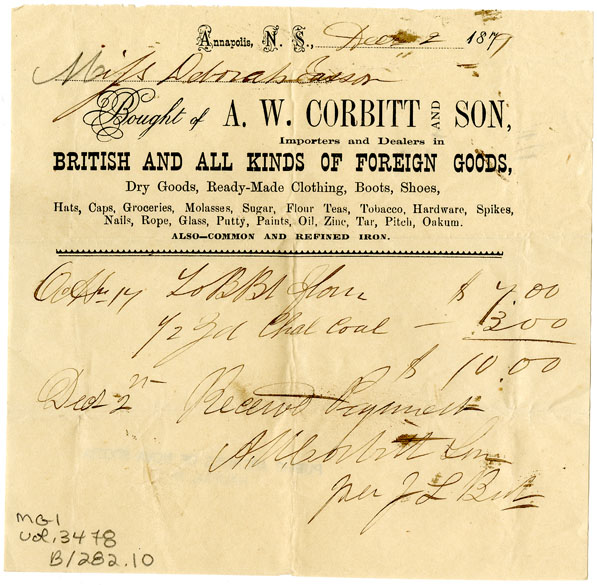 Annapolis, N. S., Decr 2 1879
Miss Deborah
Bought of A. W. CORBITT AND SON,
Importers and Dealers in
BRITISH AND ALL KINDS OF FOREIGN GOODS,
Dry Goods, Ready-Made Clothing, Boots, Shoes,
Hats, Caps, Groceries, Molasses, Sugar, Flour Teas, Tobacco, Hardware, Spikes,
Nails, Rope, Glass, Putty, Paints, Oil, Zinc, Tar, Pitch, Oakum.
ALSO—COMMON AND REFINED IRON.
17 To BBl Flour $ 7.00
1/2 Coal — 3.00
$ 10.00
Decr 2 Received Payment
A. W. Corbitt Son
per J L
MG1
Vol. 3478
B/282.10